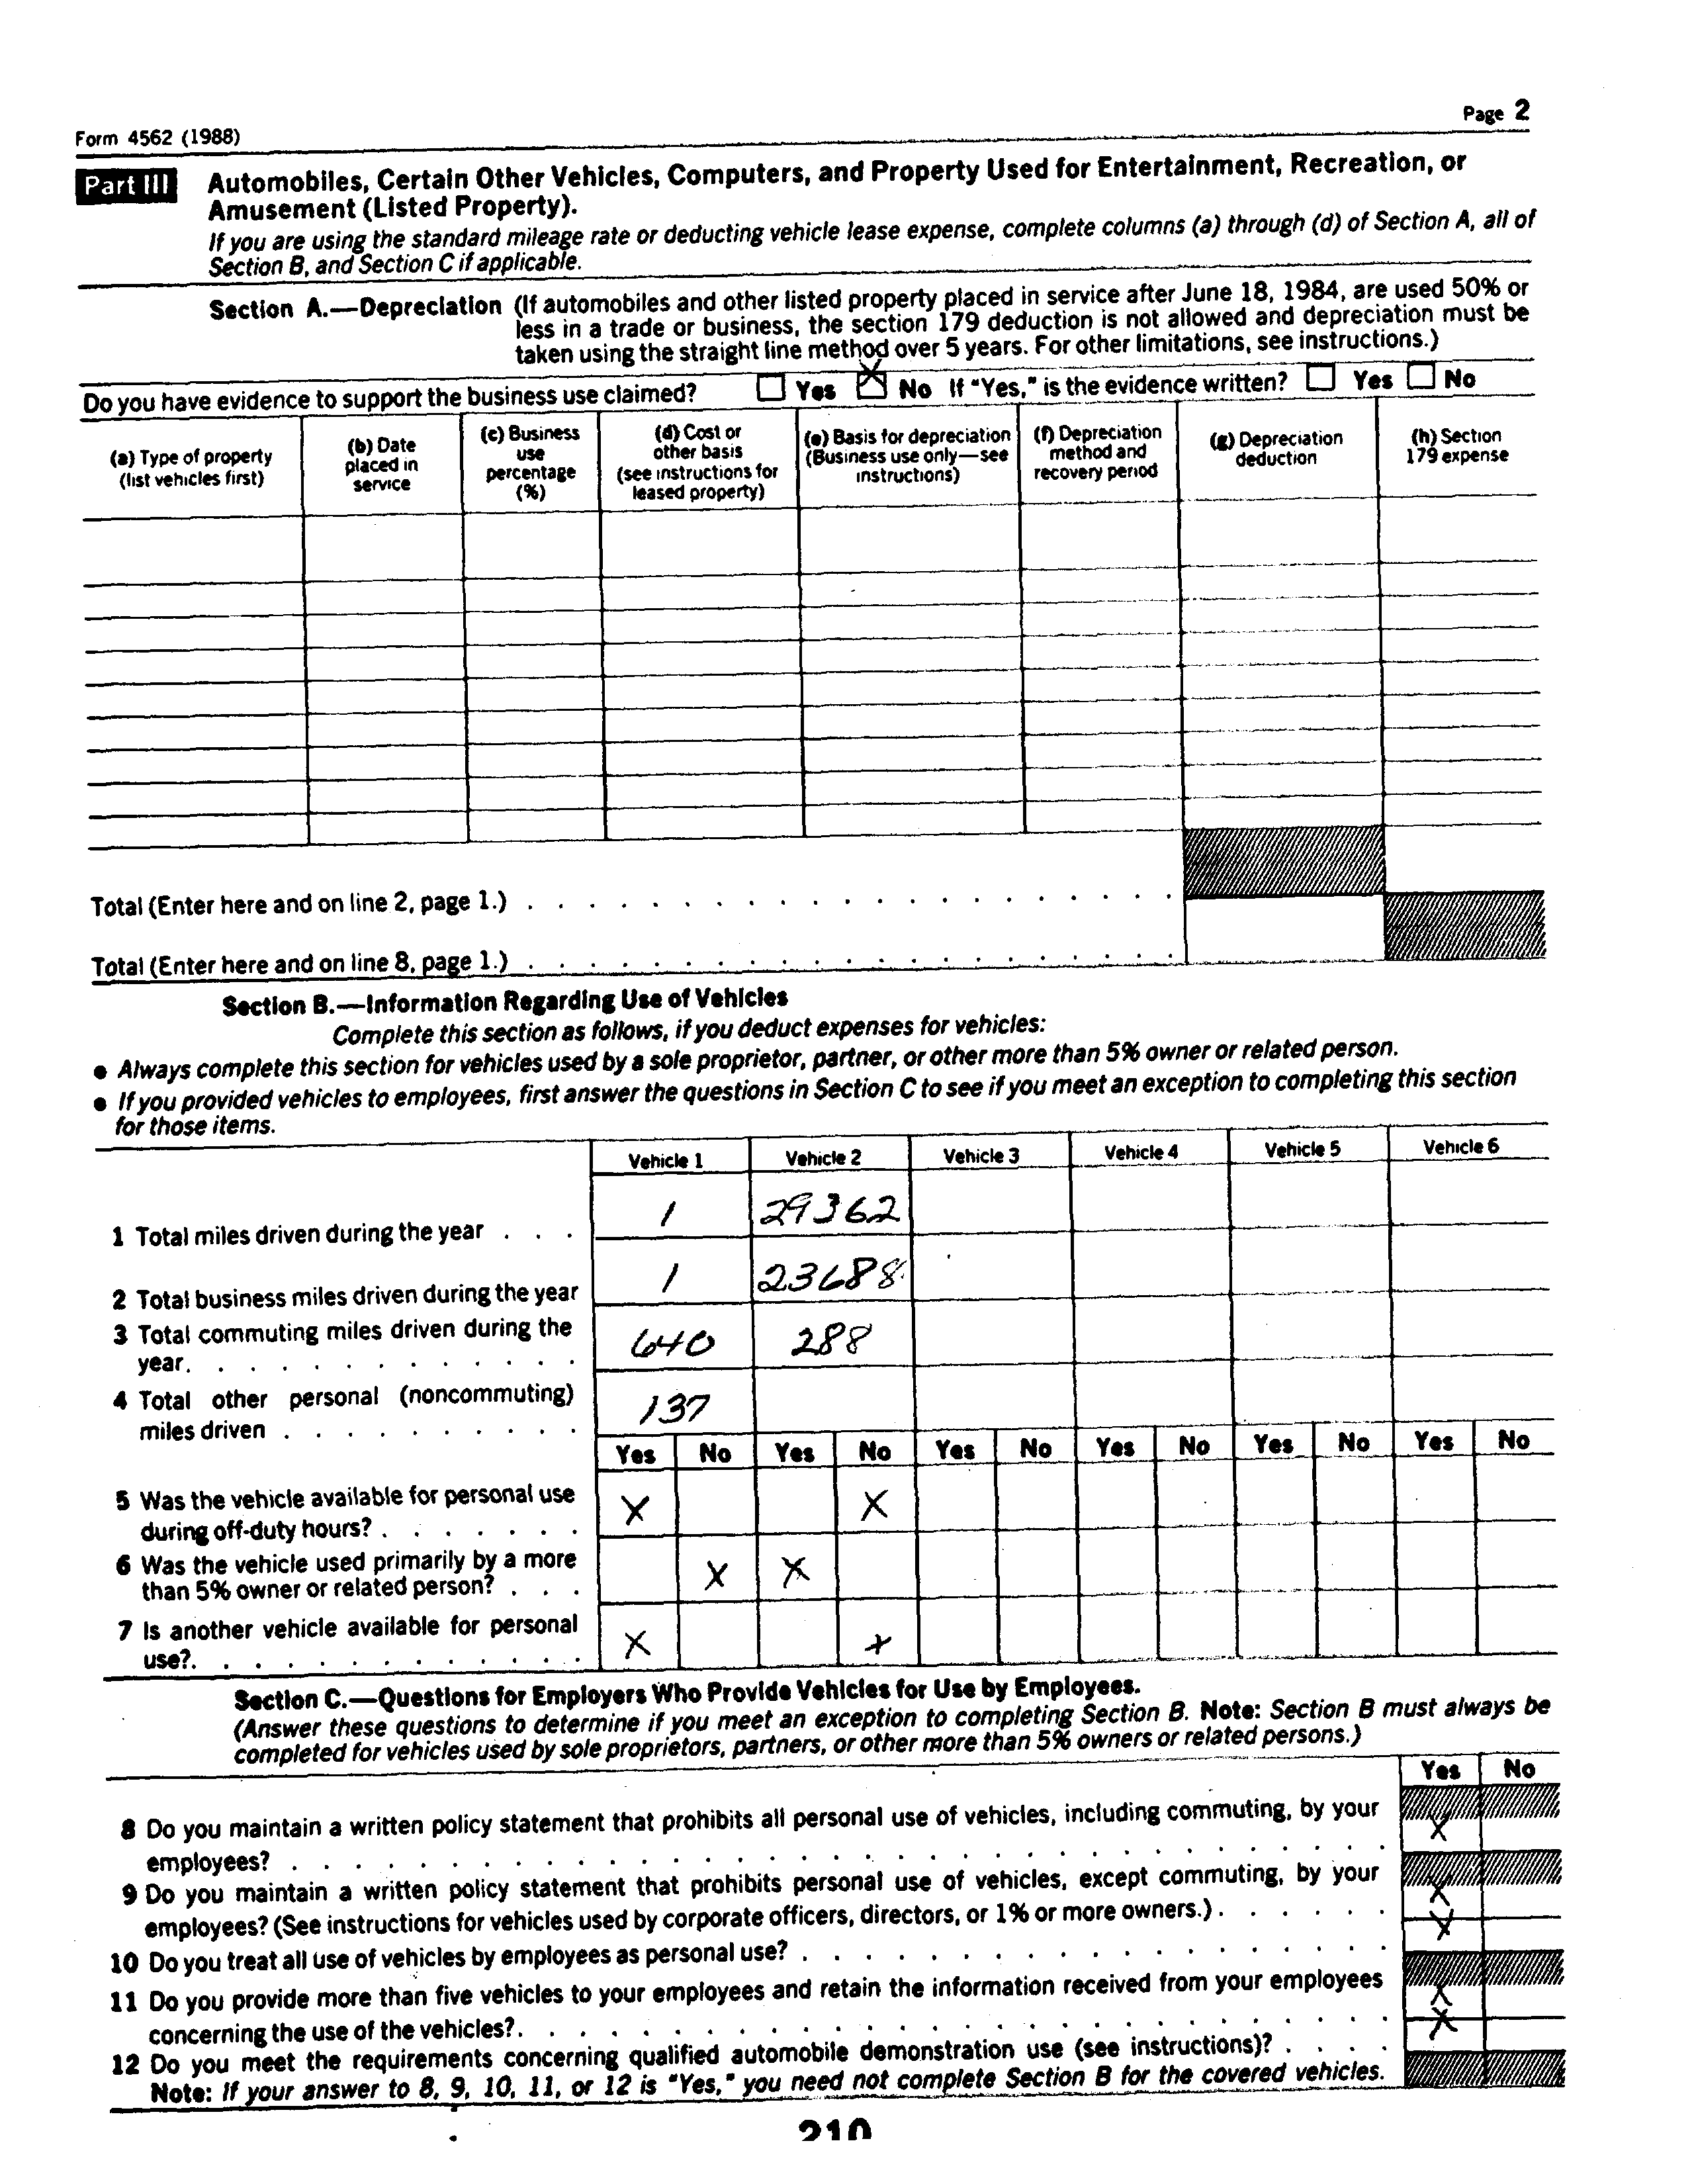 Page 2
Form 4562 (1988)
Part III Automobiles, Certain Other Vehicles, Computers, and Property Used for Entertainment, Recreation, or
Amusement (Listed Property).
If you are using the standard mileage rate or deducting vehicle lease expense, complete columns (a) through (d) of Section A, all of
Section B, and Section C if applicable.
Section A.—Depreciation (If automobiles and other listed property placed in service after June 18, 1984, are used 50% or
less in a trade or business, the section 179 deduction is not allowed and depreciation must be
taken using the straight line method over 5 years. For other limitations, see instructions.)
Do you have evidence to support the business use claimed? Yes X No If "Yes," is the evidence written? Yes No
(a) Type of property
(list vehicles first)
(b) Date
placed in
service
(c) Business
use
percentage
(%)
(d) Cost or
other basis
(see instructions for
leased property)
(e) Basis for depreciation
(Business use only—see
instructions)
(f) Depreciation
method and
recovery period
(g) Depreciation
deduction
(h) Section
179 expense
Total (Enter here and on line 2, page 1.) . . . . . . . . . . . . . . . . . . . . .
Total (Enter here and on line 8, page 1.) . . . . . . . . . . . . . . . . . . . . .
Section B.—Information Regarding Use of Vehicles
Complete this section as follows, if you deduct expenses for vehicles:
● Always complete this section for vehicles used by a sole proprietor, partner, or other more than 5% owner or related person.
● If you provided vehicles to employees, first answer the questions in Section C to see if you meet an exception to completing this section
for those items.
Vehicle 1 Vehicle 2 Vehicle 3 Vehicle 4 Vehicle 5 Vehicle 6
1 Total miles driven during the year . . . 1 29362
2 Total business miles driven during the year 1 23688
3 Total commuting miles driven during the
year. . . . . . . . . . . . . 640 288
4 Total other personal (noncommuting)
miles driven . . . . . . . . . . 137
Yes No Yes No Yes No Yes No Yes No Yes No
5 Was the vehicle available for personal use
during off-duty hours? . . . . . . . X X
6 Was the vehicle used primarily by a more
than 5% owner or related person? . . . X X
7 Is another vehicle available for personal
use?. . . . . . . . . . . . . X X
Section C.—Questions for Employers Who Provide Vehicles for Use by Employees.
(Answer these questions to determine if you meet an exception to completing Section B. Note: Section B must always be
completed for vehicles used by sole proprietors, partners, or other more than 5% owners or related persons.)
Yes No
8 Do you maintain a written policy statement that prohibits all personal use of vehicles, including commuting, by your
employees? . . . . . . . . . . . . . . . . . . . . . . . . . . . . . . . . . . . X
9 Do you maintain a written policy statement that prohibits personal use of vehicles, except commuting, by your
employees? (See instructions for vehicles used by corporate officers, directors, or 1% or more owners.) . . . . . . X
10 Do you treat all use of vehicles by employees as personal use? . . . . . . . . . . . . . . . . . . . X
11 Do you provide more than five vehicles to your employees and retain the information received from your employees
concerning the use of the vehicles?. . . . . . . . . . . . . . . . . . . . . . . . . . . . X
12 Do you meet the requirements concerning qualified automobile demonstration use (see instructions)? . . . . X
Note: If your answer to 8, 9, 10, 11, or 12 is "Yes," you need not complete Section B for the covered vehicles.
210